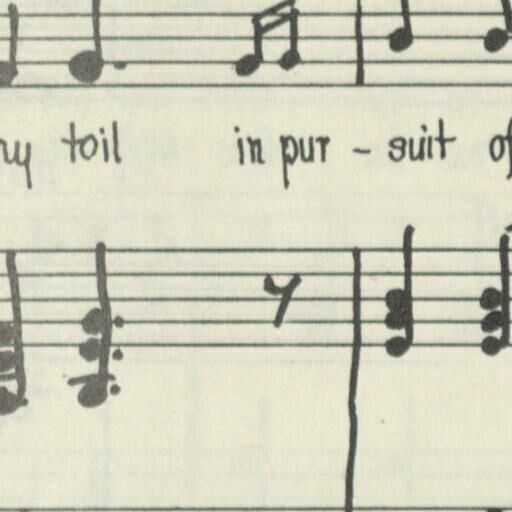 toil in pur - suit of